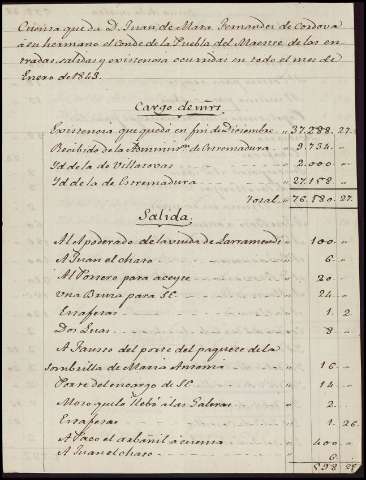 Cuenta que da D. Juan de Mata Fernandez de Cordova
á su hermano el Conde de la Puebla del Maestre de las en-
tradas, salidas y existencia ocurridas en todo el mes de
Enero de 1843.
Cargo de mrs.
Existencia que quedó en fin de Diciembre 37.288.. 27.
Recibido de la Adminon. de Estremadura 9.734.. "
Yd de la de Villatovas 2.000.. "
Yd de la de Estremadura 27.158 "
Total.. 76.180.. 27.
Salida.
Al Apoderado de la viuda de Larramendi 100.. "
A Juan el chato 6.. "
Al Portero para aceyte 20.. "
Una Bruza para SE 24.. "
En rafetas 1.. 2
Dos Quas 8.. "
A Fausto del porte del paquete de la
sombrilla de Maria Antonia 16.. "
Porte del encargo de SE 14.. "
Mozo que lo llebó á las Galeras 2.. "
En rafetas 1.. 26.
A Paco el albañil á cuenta 400.. "
A Juan el chato 6.. "
598.. 28